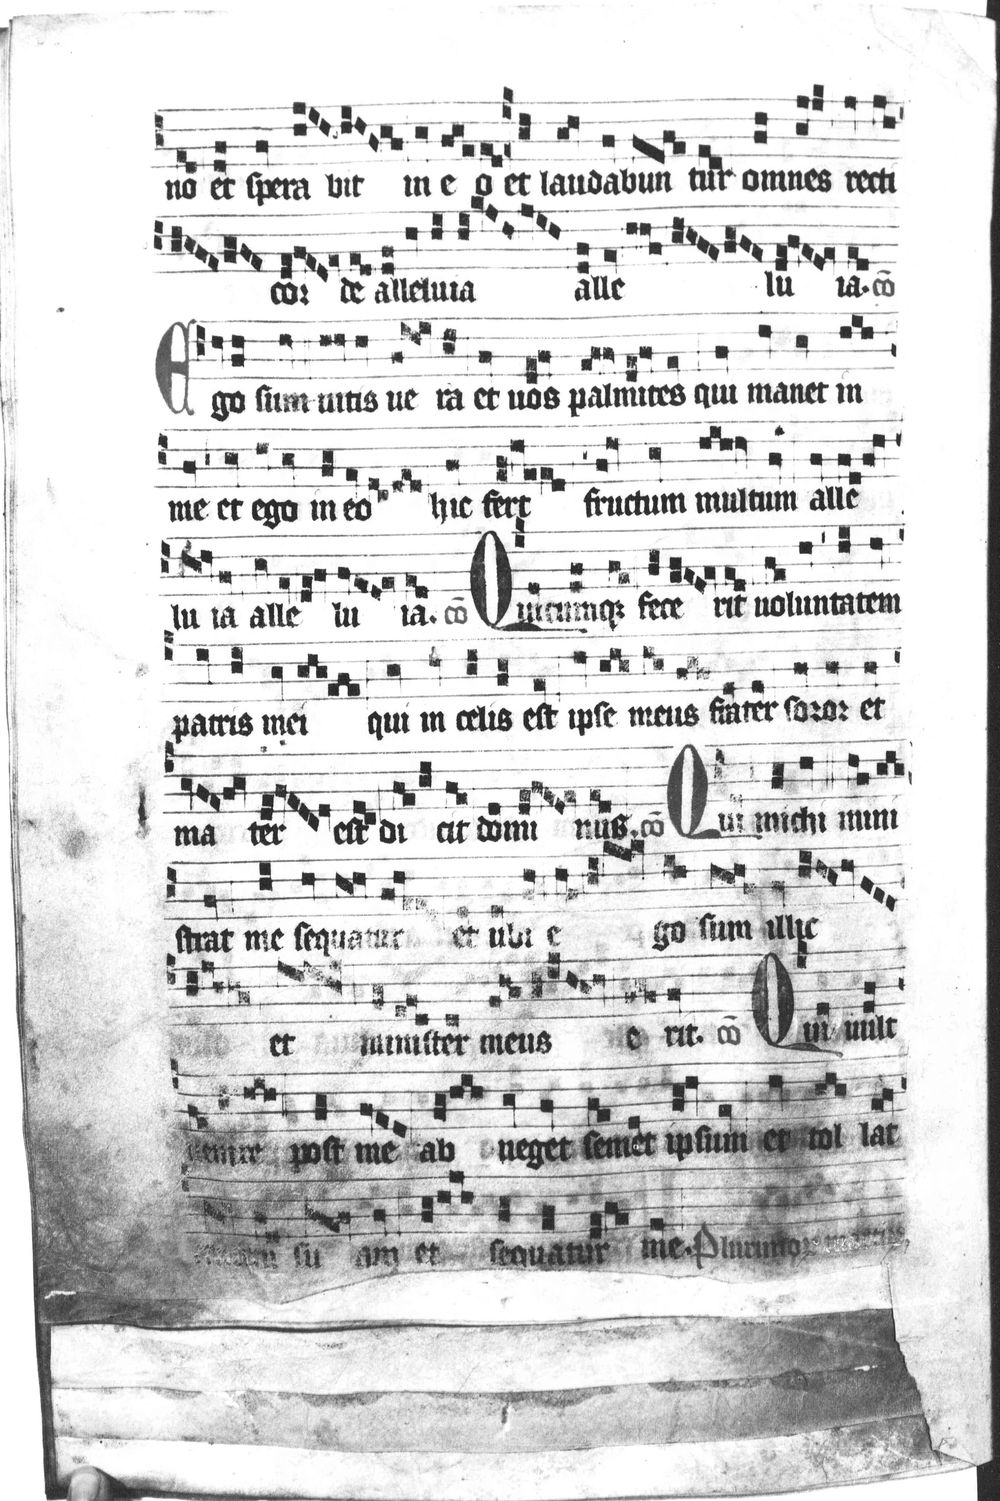 no et spera bit in e o et laudabun tur omnes recti
cor de alleluia alle lu ia. cō
Ego sum uitis ue ra et uos palmites qui manet in
me et ego in eo hic fert fructum multum alle
lu ia alle lu ia. cō Quicumqꝫ fece rit uoluntatem
patris mei qui in celis est ipse meus frater soror et
ma ter est di cit domi nus. cō Qui michi mini
strat me sequatur et ubi e go sum illic
et minister meus e rit. cō Qui uult
uenire post me ab neget semet ipsum et tol lat
su am et sequatur me. Plurimoꝝ